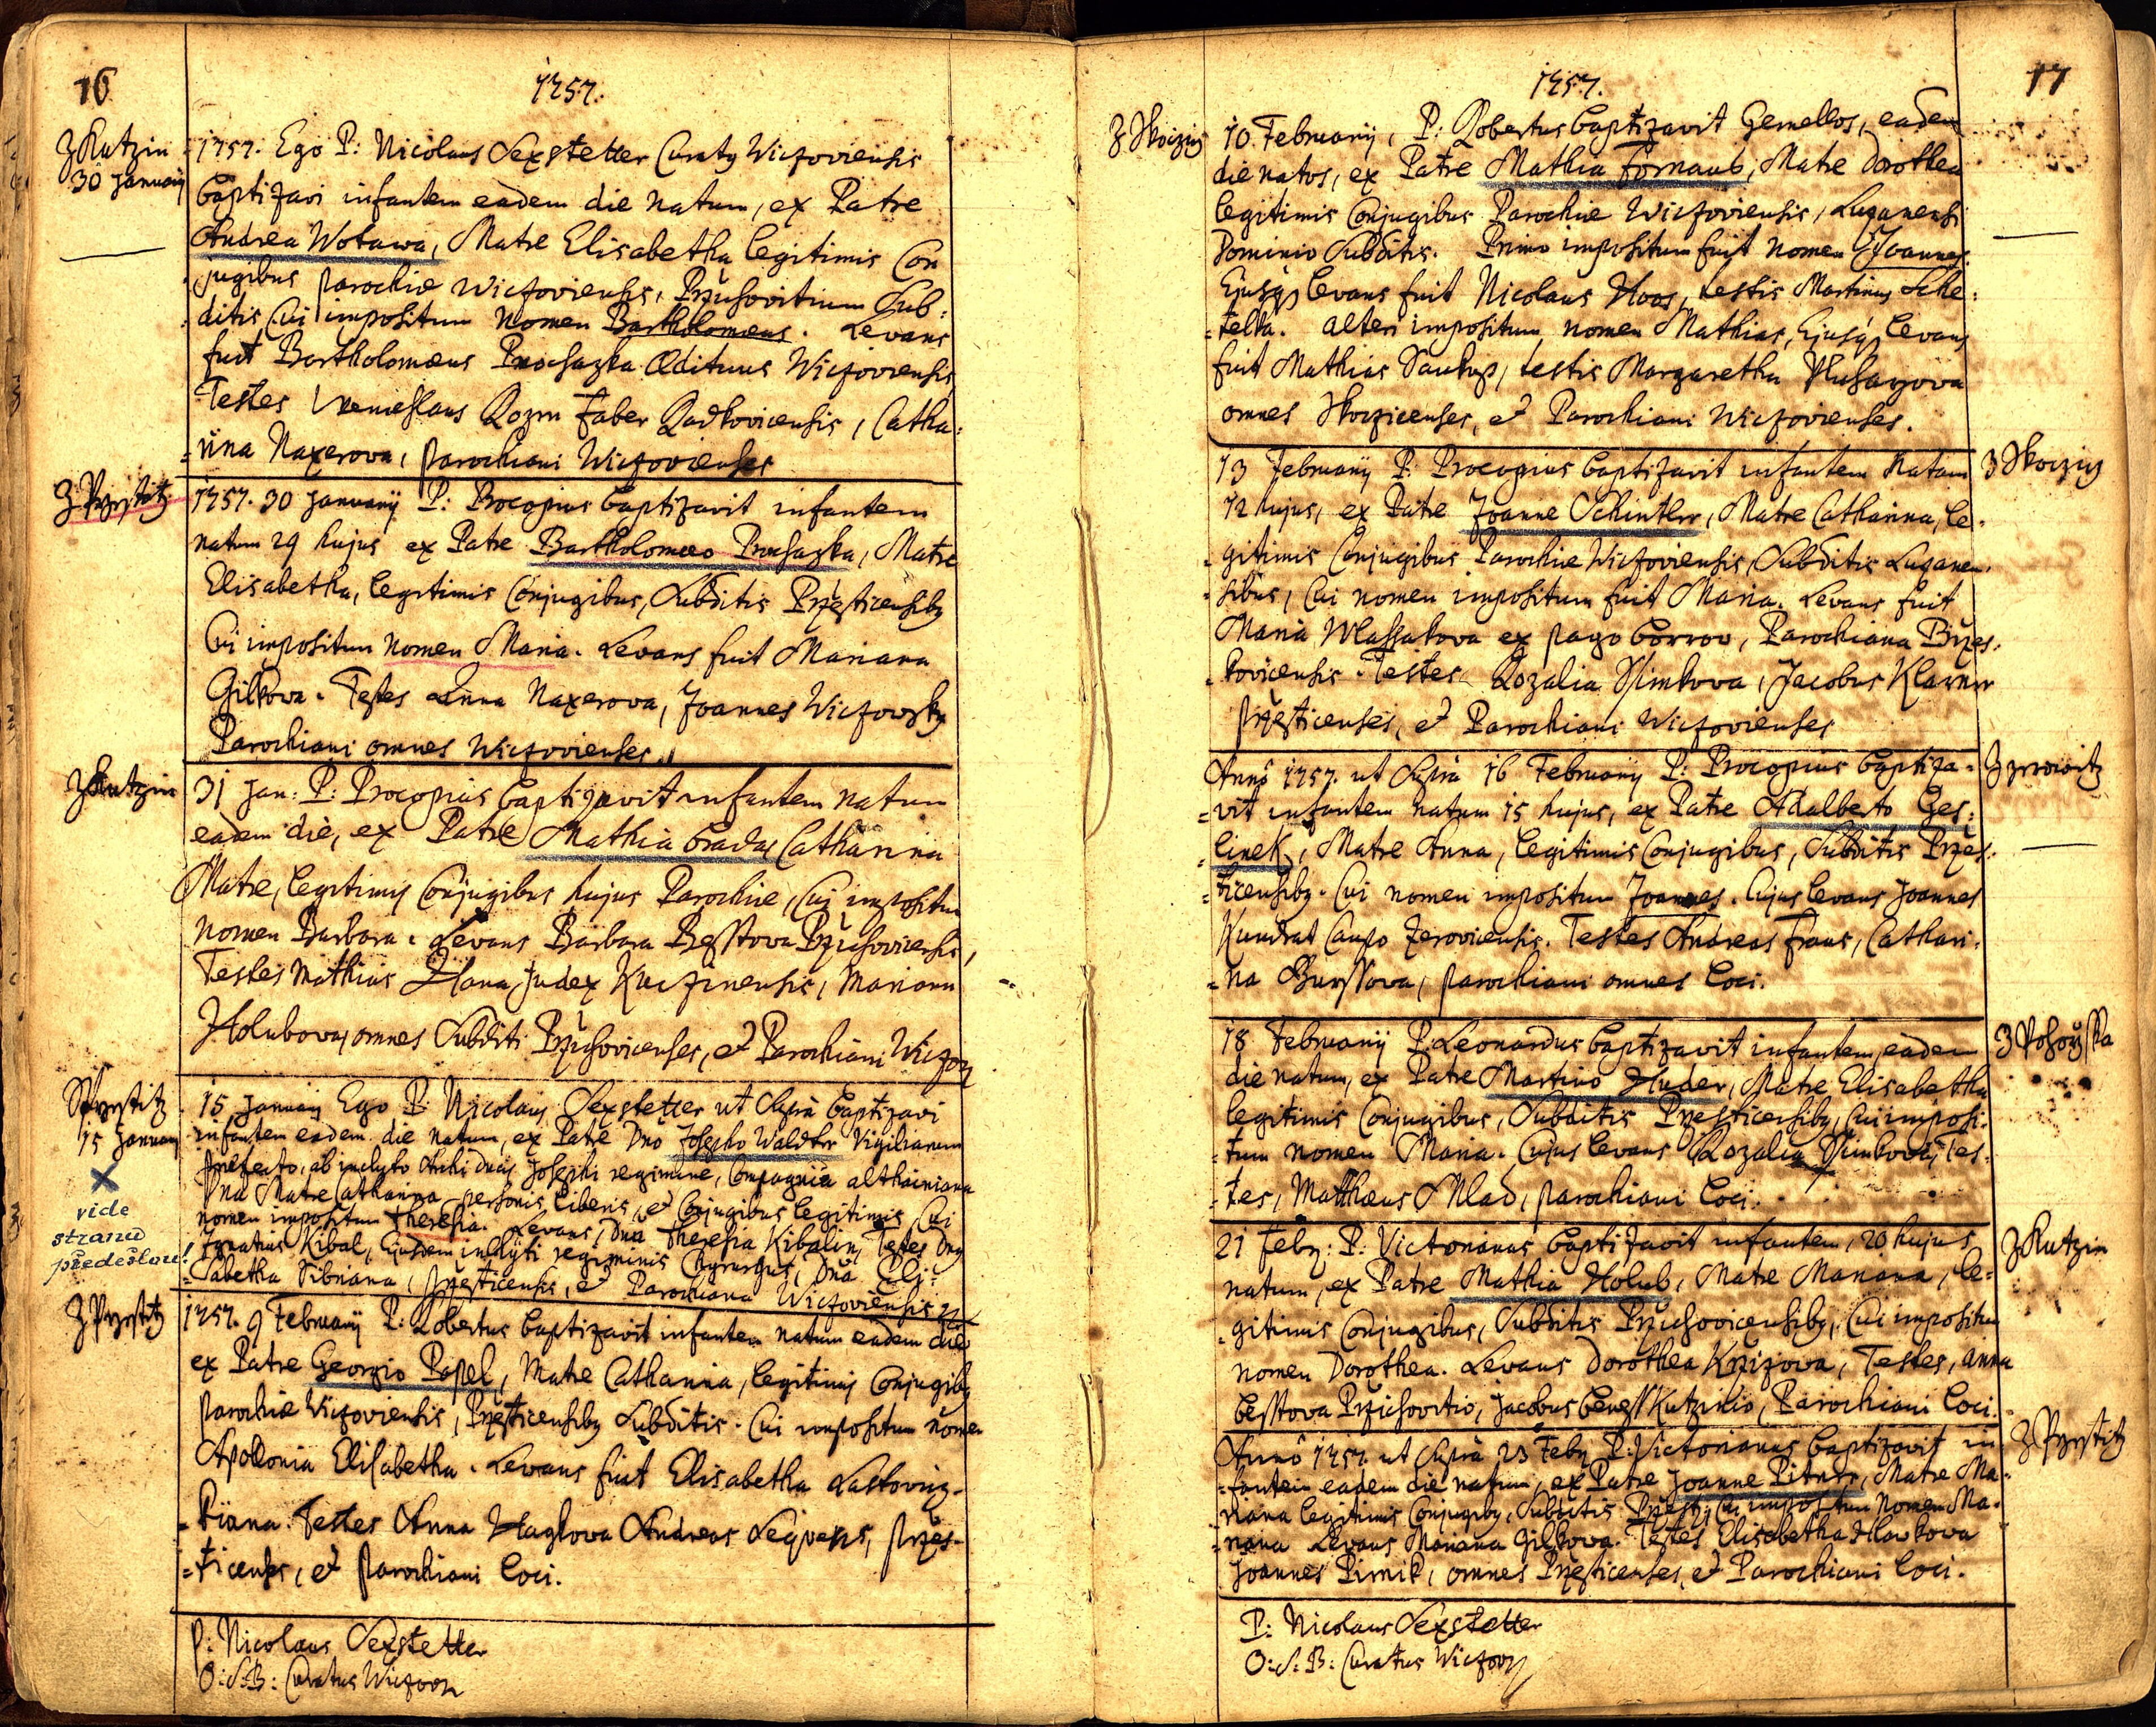 16
1757.
Z Kutzin
30 January
1757. Ego P: Nicolaus Sexstetter Curatq Wiczoviensis
baptizavi infantem eadem die natum, ex Patre
Andrea Wotawa, Matre Elisabetha legitimis Con
jugibus parochiæ Wiczoviensis, Przichovitium Sub=
ditis, Cui impositum nomen Bartholomæus. Levans
fuit Bartholomæus Prochazka Ædituus Wiczoviensis
Testes Wenceslaus Rozm faber Radkovicensis, Catha=
rina Naxerova, parochiani Wiczovienses
Z Przestitz
1757. 30 Januarij P: Procopius baptizavit infantem
natum 29 hujus ex Patre Bartholomæo Prochazka, Matre
Elisabetha, legitimis Conjugibus, Subditis Przesticensibq
Cui impositum nomen Maria. Levans fuit Mariana
Gilkova. Testes Anna Naxerova, Joannes Wiczowsky
Parochiani omnes Wiczovienses.
Z Kutzin
31 Jan: P: Procopius baptizavit infantem natum
eadem die, ex Patre Mathia Catharina
Matre, legitimis Conjugibus hujus Parochiæ, Cui impositum
nomen Barbara. Levans Barbara Bessova Przichovicensis,
Testes Mathias Hana, Judex Kuczinensis, Mariana
Holubova, omnes Subditi Przichovicenses, et Parochiani Wiczov
S Przestitz
15 January
X
vide
stranu
předešlou!
15 January Ego P: Nicolaus Sexstetter ut supra baptizavi
infantem eadem die natum, ex Patre Dno Josepho Waldtr Vigiliarum
præfecto, ab inclyto Archi ducis Josephi regimine, Compagnia althainiana
Dna Matre Catharina personis liberis, et Conjugibus legitimis, Cui
nomen impositum Theresia. Levans, Dna Theresia Kibalin, Testes Dnq
Ignatius Kibal, Ejusdem inclyti regiminis Chyrurgus, Dna Eli=
=sabetha Sibriana, Przesticensis, et Parochiana Wiczoviensis
Z Przestitz
1757. 9 Februarij P: Robertus baptizavit infantem natum eadem die
ex Patre Georgio Papel, Matre Catharina, legitimis Conjugibq
parochiæ Wiczoviensis, Przesticensibq Subditis. Cui impositum nomen
Apollonia Elisabetha. Levans fuit Elisabetha Lastoviz-
=kiana. Testes Anna Andreas przes-
=ticenses, et parochiani loci.
P: Nicolaus Sexstetter
O:S:B: Curatus Wiczov
17
1757.
Z Skoczicz
10 Februarij, P: Robertus baptizavit Gemellos, eadem
die natos, ex Patre Mathia Formaub, Matre Dorothea
legitimis Conjugibus Parochiæ Wiczoviensis, Luzanensi
Dominio Subditis. Primo impositum fuit nomen Joannes.
Ejusq levans fuit Nicolaus Hoos, testis Martinus Sche=
=telka. alteri impositum nomen Mathias, Ejusq levans
fuit Mathias Saukup, testis Margaretha
omnes Skoczicenses, et Parochiani Wiczovienses.
Z Skoczicz
13 Februarij P: Procopius baptizavit infantem Natam
12 hujus, ex Patre Joanne Schintler, Matre Catharina, le=
=gitimis Conjugibus Parochiæ Wiczoviensis, Subditis Luzanen=
=sibus, Cui nomen impositum fuit Maria. Levans fuit
Maria Wlassakova ex pago borrov, Parochiana Brzes=
=kovicensis. Testes Rozalia Simkova, Jacobus Klarner
przesticenses, et Parochiani Wiczovienses
Z zerowitz
Anno 1757. ut supra 16 Februarij P: Procopius baptiza=
=vit infantem natum 15 hujus, ex Patre Adalberto Ges=
linek, Matre Anna, legitimis Conjugibus, Subditis Przes=
=ticensibq. Cui nomen impositum Joannes. Cujus levans Joannes
Kundrat Caupo Zerovicensis. Testes Andreas Fraus, Cathari=
=na Burssova, parochiani omnes loci.
Z
18 Februarij P: Leonardus baptizavit infantem eadem
die natum, ex Patre Martino Huder, Matre Elisabetha
legitimis Conjugibus, Subditis Przesticensibq, Cui imposi=
=tum nomen Maria. Cujus levans Rozalia Simkova, Tes=
=tes, Matthæus Mlad, parochiani loci.
Z Kutzin
21 Febq: P: Victorianus baptizavit infantem, 20 hujus
natum, ex Patre Mathia Holub, Matre Mariana, le=
=gitimis Conjugibus, Subditis Przichovicensibq, Cui impositum
nomen Dorothea. Levans Dorothea Krzizova, Testes, anna
bessova Przichovitio, Jacobus beness Kutzinio, Parochiani loci
Z Przestitz
Anno 1757. ut supra 23 Febq P: Victorianus baptizavit in
=fantem eadem die natum, ex Patre Joanne Pitner, Matre Ma=
riana legitimis Conjugibq, Subditis Przest, Cui impositum nomen Ma=
=riana Levans Mariana Gilkova. Testes Elisabetha Hlavkova
Joannes Pirnik, omnes Przesticenses, et Parochiani loci.
P: Nicolaus Sexstetter
O:S:B: Curatus Wiczov